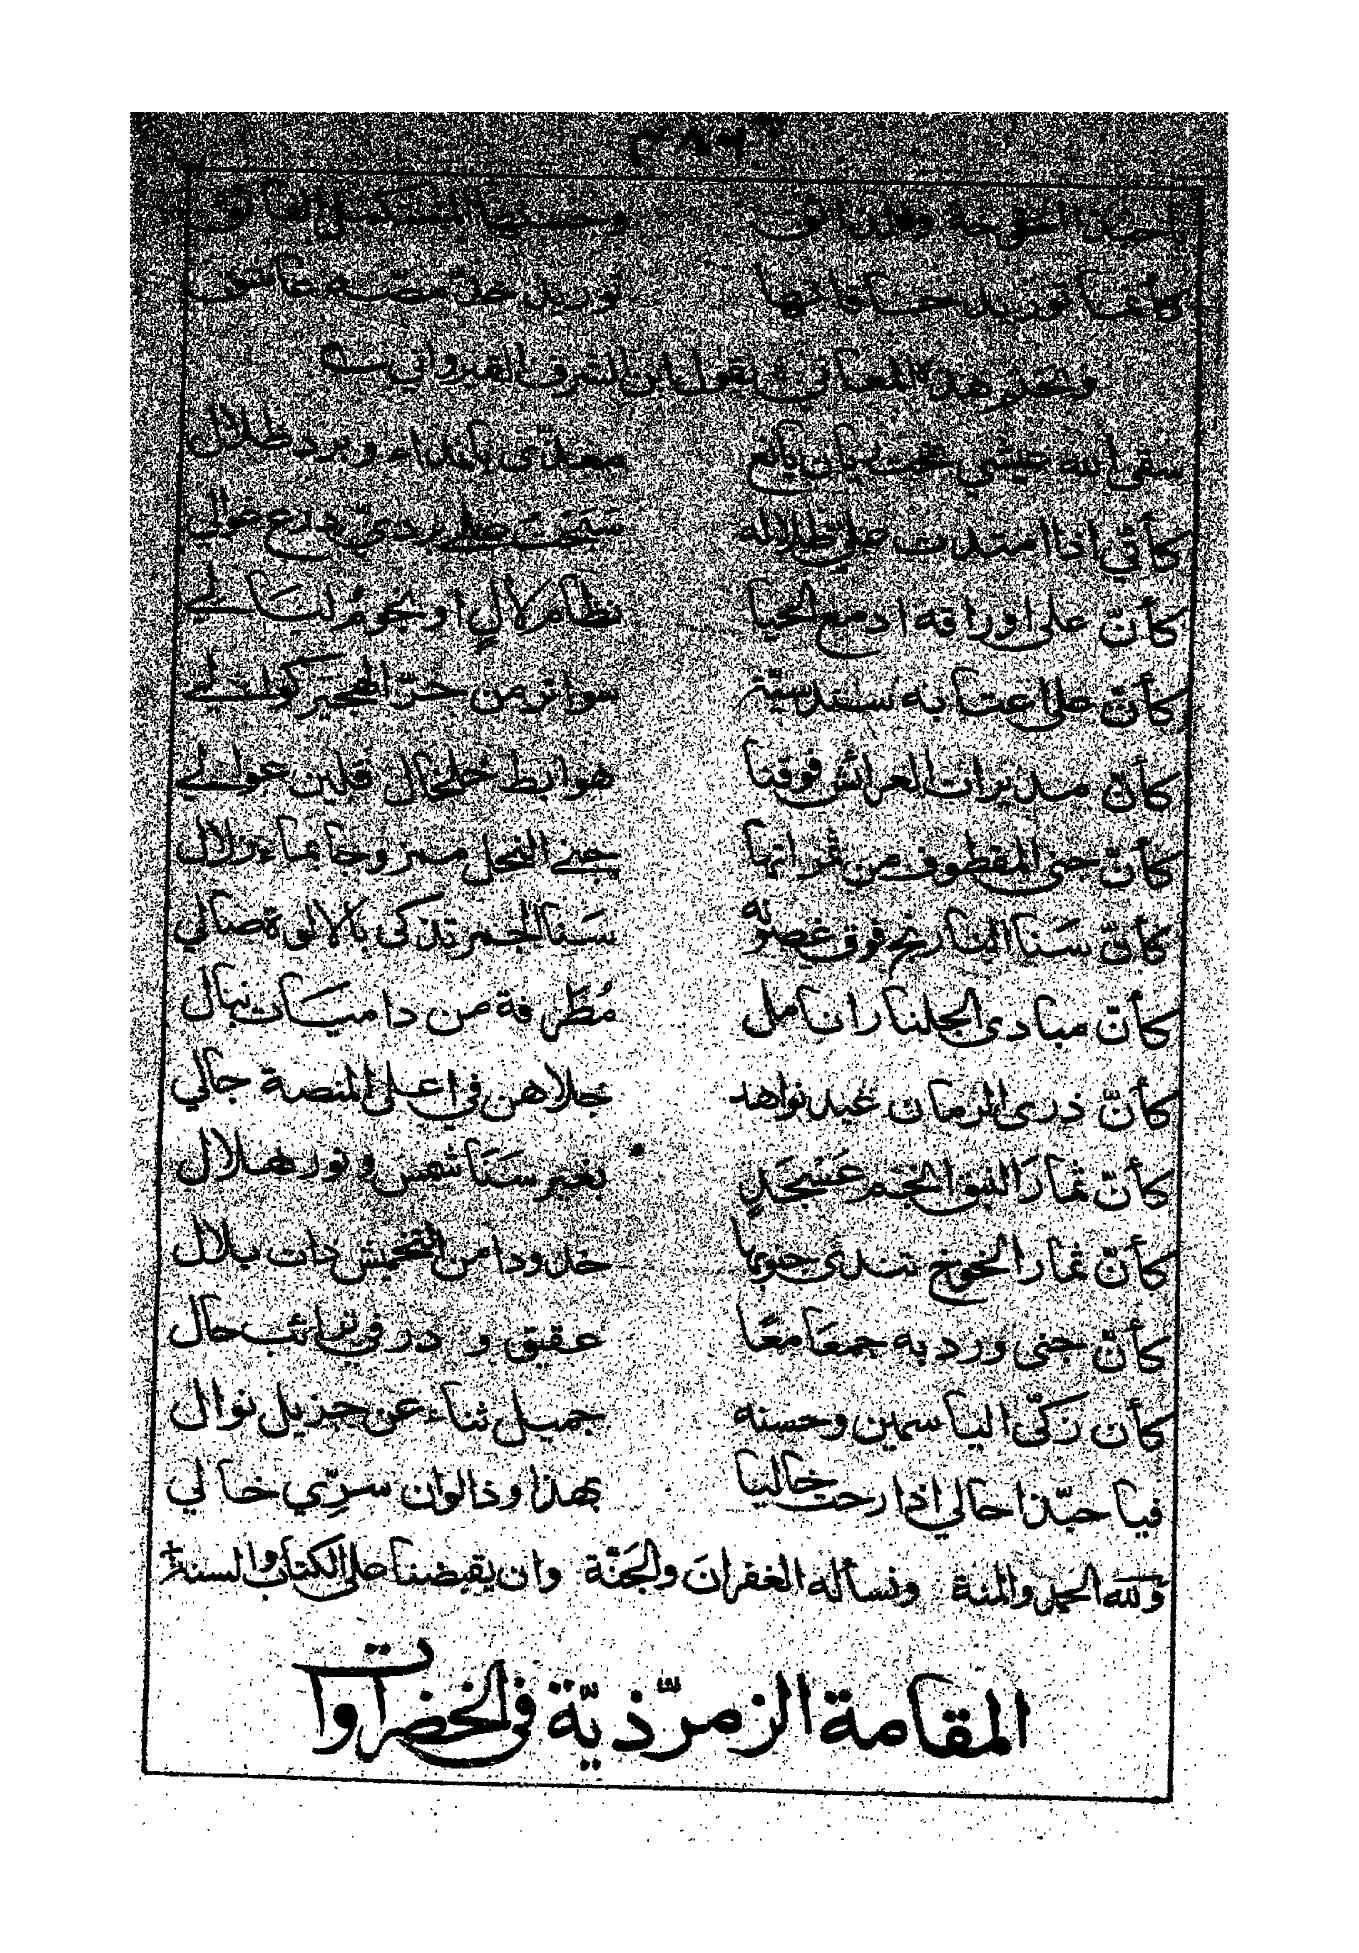 كأنما توريد حسنا ما بها توريد خدّ مصه عاشق
وتحذر هذه المعاني نقول ابن الشرف القيرواني
سقى الله حيشي تحت ريان يانع مغذّى بانداء وبرد ظلال
كأنّي اذا امتدت عليّ ظلاله
كأنّ على اوراقه ادمع الحيا نظام لآلٍ او نجوم ليالي
كأنّ على اعتابه سندسيّة سواتر من حرّ الهجير كوالي
كأنّ مدبرات العرائش فوقنا هوابط خلخال قلبن عوالي
كأنّ جنى المقطوف من ثمراتها جنى النحل ممزوجا بماء زلال
كأنّ سنا النارنج فوق غصونه سَنا الجمر تذكى بالالوة صالي
كأنّ مبادى الجلنار انامل مُطرّفة من داميات نبال
كأنّ ذرى الرمان غيد نواهد جلاهن في اعلى المنصة جالي
كأنّ ثمارَ النبو الجم عَسْجَدٍ بغير سَنَا شمس ونور هلال
كأنّ ثمار الخوخ تندى جنوبها خدودا من التخميش ذات بلال
كأنّ جنى ورد به جمعَا معًا عقيق ودر في ترائب حال
كأن زكّى الياسمين وحسنه جميل ثناء عن جزيل نوال
فيا حبّذا حالي اذا رحت خاليا بهذا وذا لوان سرّي خالي
ولله الحمد والمنة ونسأله الغفران والجنّة وان يقبضنا على الكتاب والسنة
المقامة الزمرّذيّة في الخضراوات